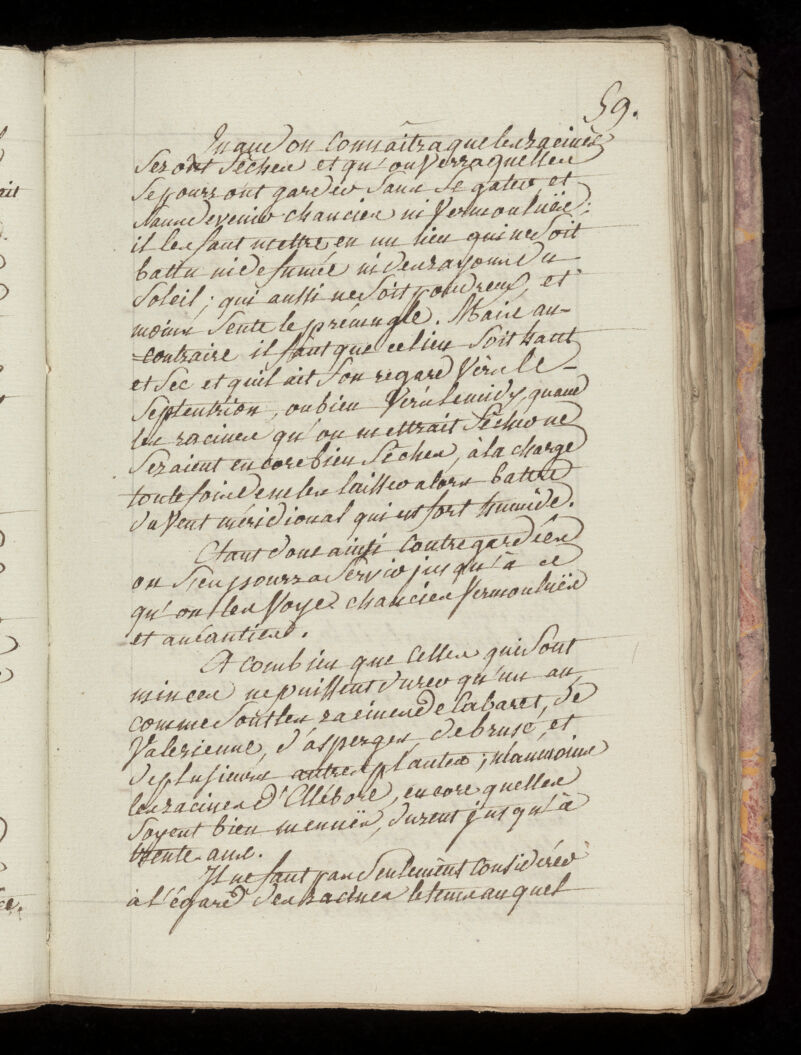 59.
Quand on connaîtra que les racines
seront sêches et qu'on verra quelles
se pourront garder sans se gater, et
sans devenir chancies ni vermouluës;
il les faut mettre en un lieu qui ne soit
battu ni de fumée ni de rayons du
soleil; qui aussi ne soit poudreux, et
moins sente le Maire au-
contraire il faut que ce lieu soit haut
et sec et qu'il ait son regard vers le-
septentrion, ou bien vers le midy, quand
les racines qu'on mettrait sêcher ne
seraient encore bien sêches, à la charge
toutefois de ne les laisser alors battre
du vent méridional qui est fort humide.
Etant donc ainsi contregardées
on s'en pourra servir jusqu'à ce
qu'on les voye chancies vermouluës
et anéanties.
Et combien que celles qui sont
minces ne puissent durer qu'un an,
comme sont les racines de Cabaret, de
Valerienne, d'asperges, de brusc, et
de plusieurs autres plantes; néanmoins
les racines d'Ellébore, encore quelles
soyent bien menuës, durent jusqu'à
trente ans.
Il ne faut pas seulement considérer
à l'égard des racines le tems auquel
ait
ce.